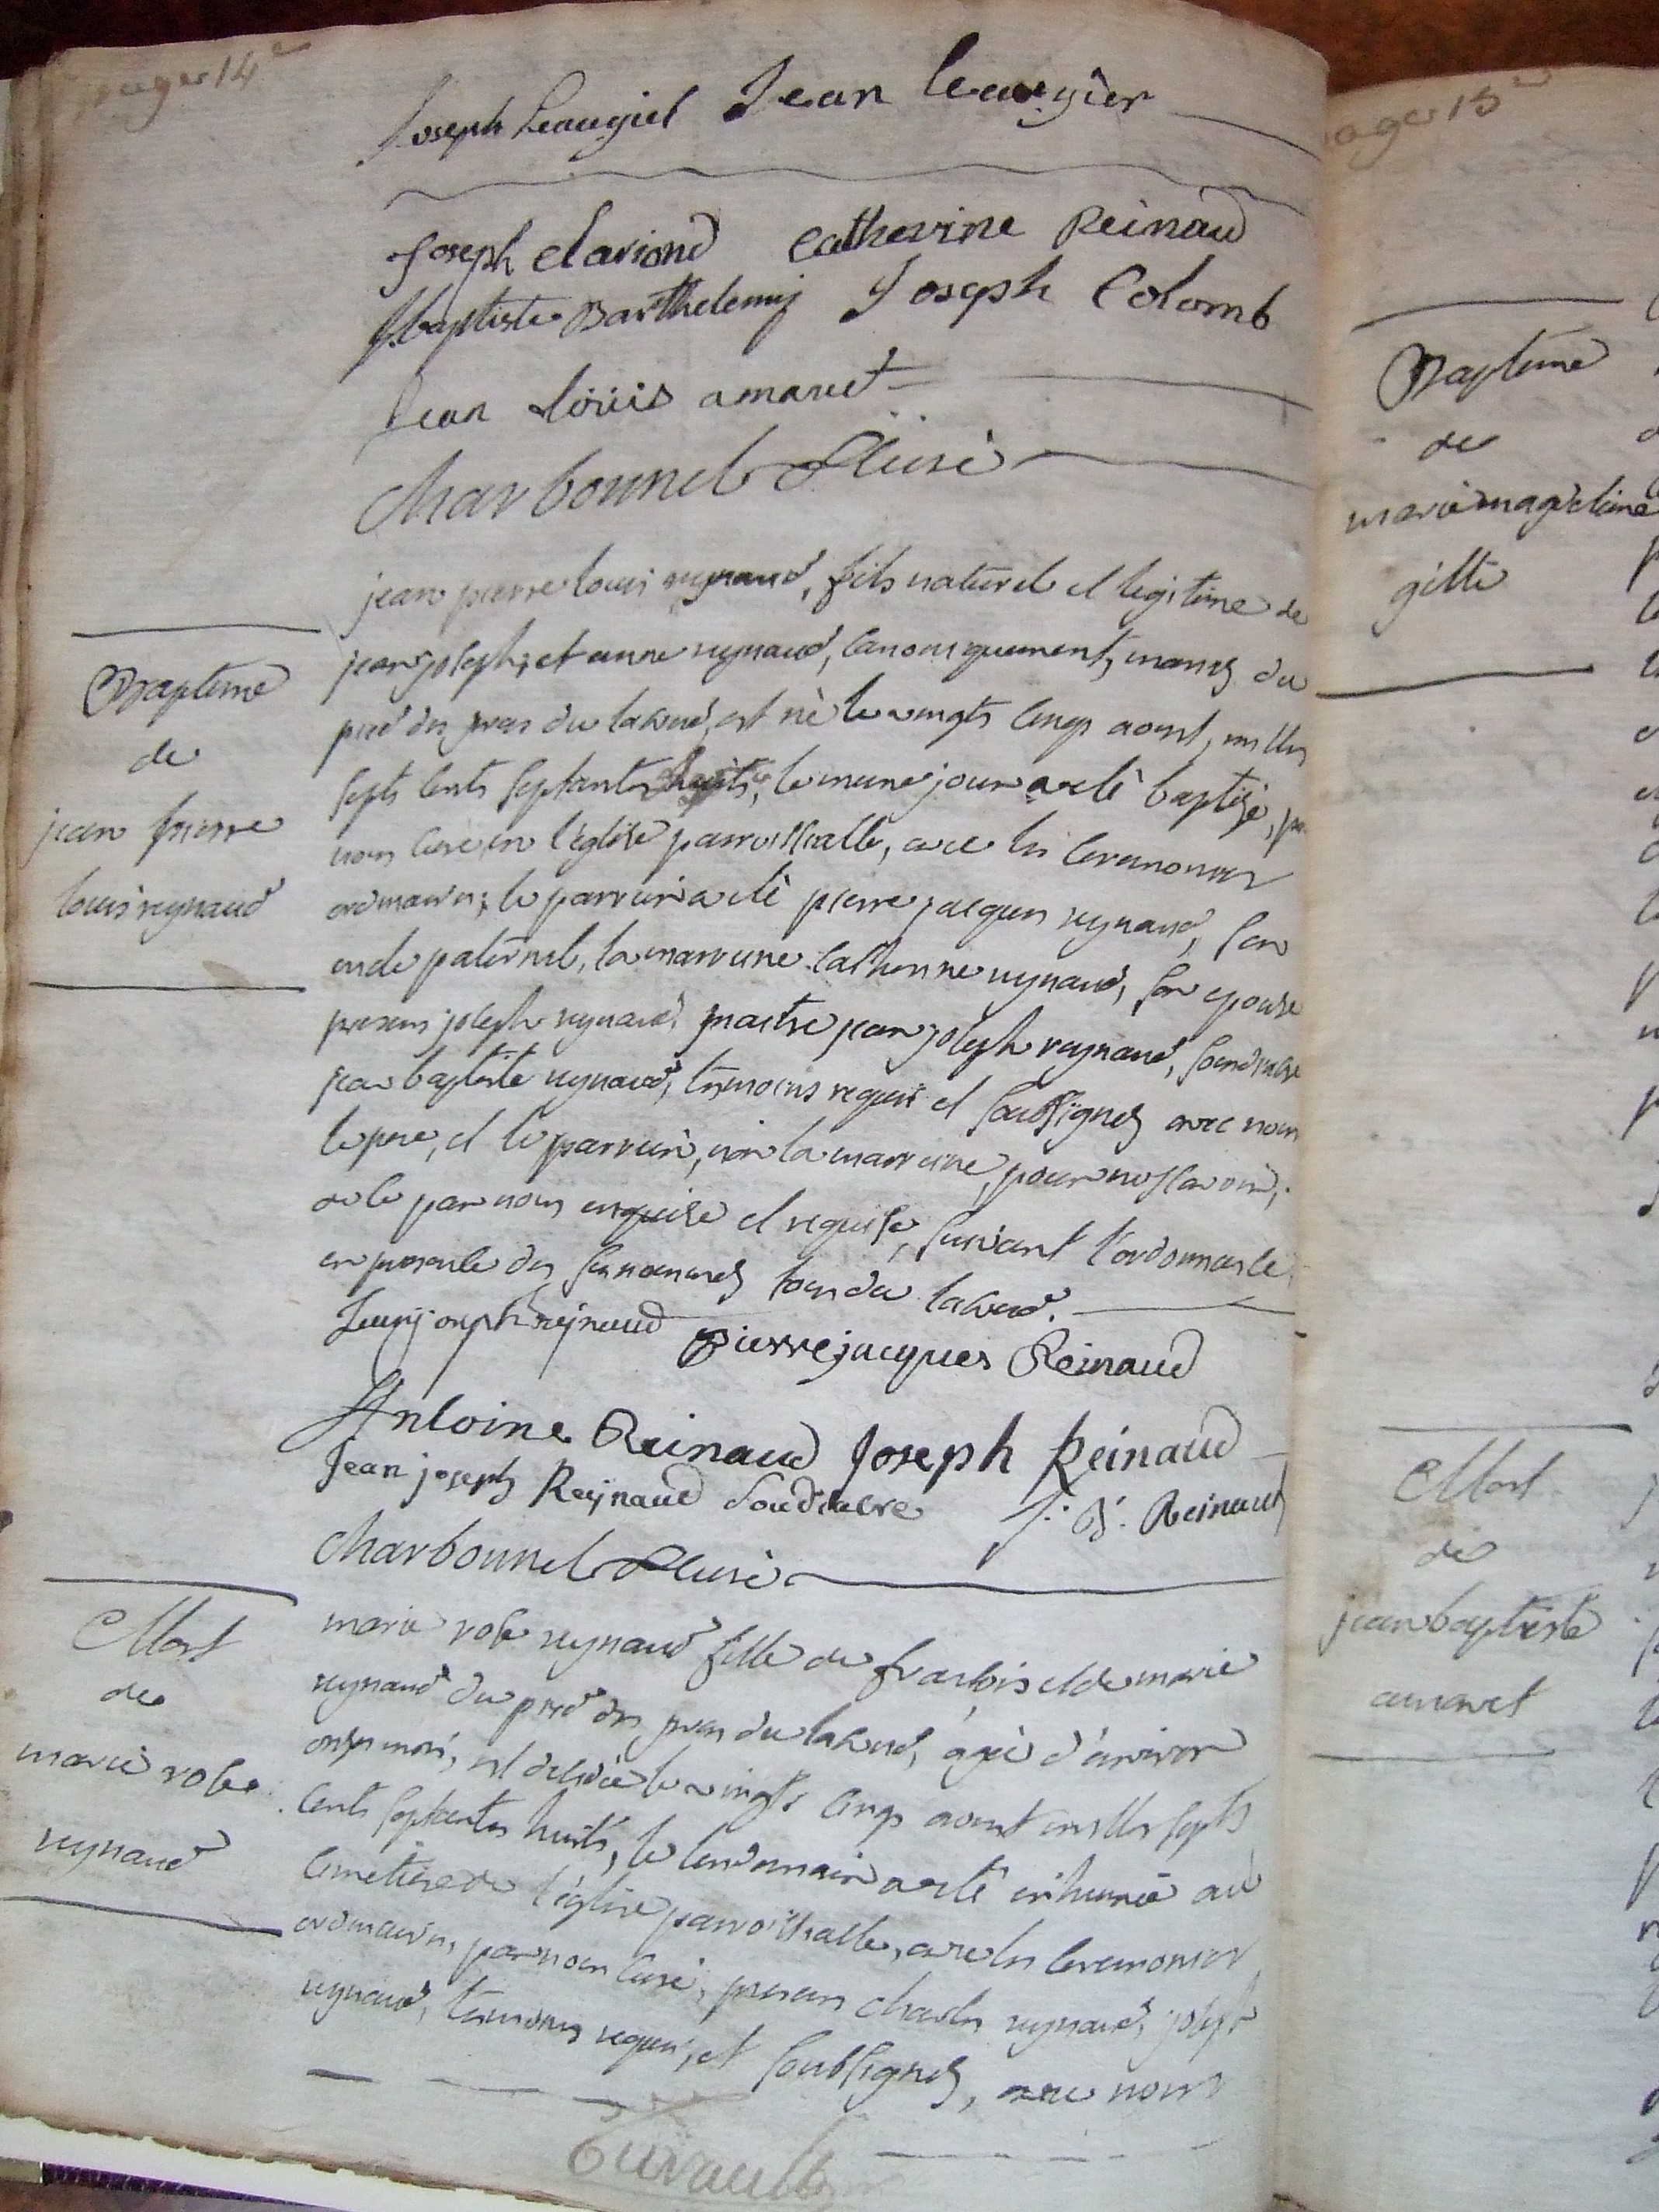 pages 14e
Joseph Leaugiel Jean leaugier
Joseph clariond Catherine Reinaud
J baptiste Barthelemy Joseph Colomb
Jean Loüis amavet
Charbonnel Curè
jean pierre louis reynaud, fils naturel et legitime de
jean joseph, et anne reynaud, canoniquement, mariés du
pied des pras du laverd, est nè le vingts cinqs aoust, milles
septs cents septantes huits, le meme jour a etè baptisé, par
nous curé, en l'église parroissialle, avec les ceremonies
ordinaires; le parrein a etè pierre jacques reynaud, son
oncle paternel, la marreine catherine reynaud, son epouse
presens joseph reynaud, maitre jean joseph reynaud, soudiacre
jean baptiste reynaud, témoins requis et soussignés avec nous
le pere, et le parrein, non la marreine, pour ne sçavoir,
de ce par nous enquise et requise, suivant l'ordonnance
en presence des sus nommés tous du laverd.
Jean joseph reynaud pierre jacques Reinaud
Antoine Reinaud Joseph Reinaud
Jean joseph Reynaud Soudiacre J. B. Reinaud
Charbonnel Curè
Baptème
de
jean pierre
louis reynaud
marie rose reynaud fille de francois et de marie
reynaud du pied des pras du laverd, âgèe d'environ
onses mois, est decedèe le vingts cinqs aoust milles septs
cents septantes huits, le lendemain a etè inhumèe au
cimetiere de l'église parroissialle, avec les ceremonies
ordinaires, par nous curé, presens charles reynaud, joseph
reynaud, témoins requis, et soussignés, avec nous
Mort
de
marie rose
reynaud
pages 15e
Baptème
de
marie magdeleine
gille
Mort
de
jean baptiste
amavet